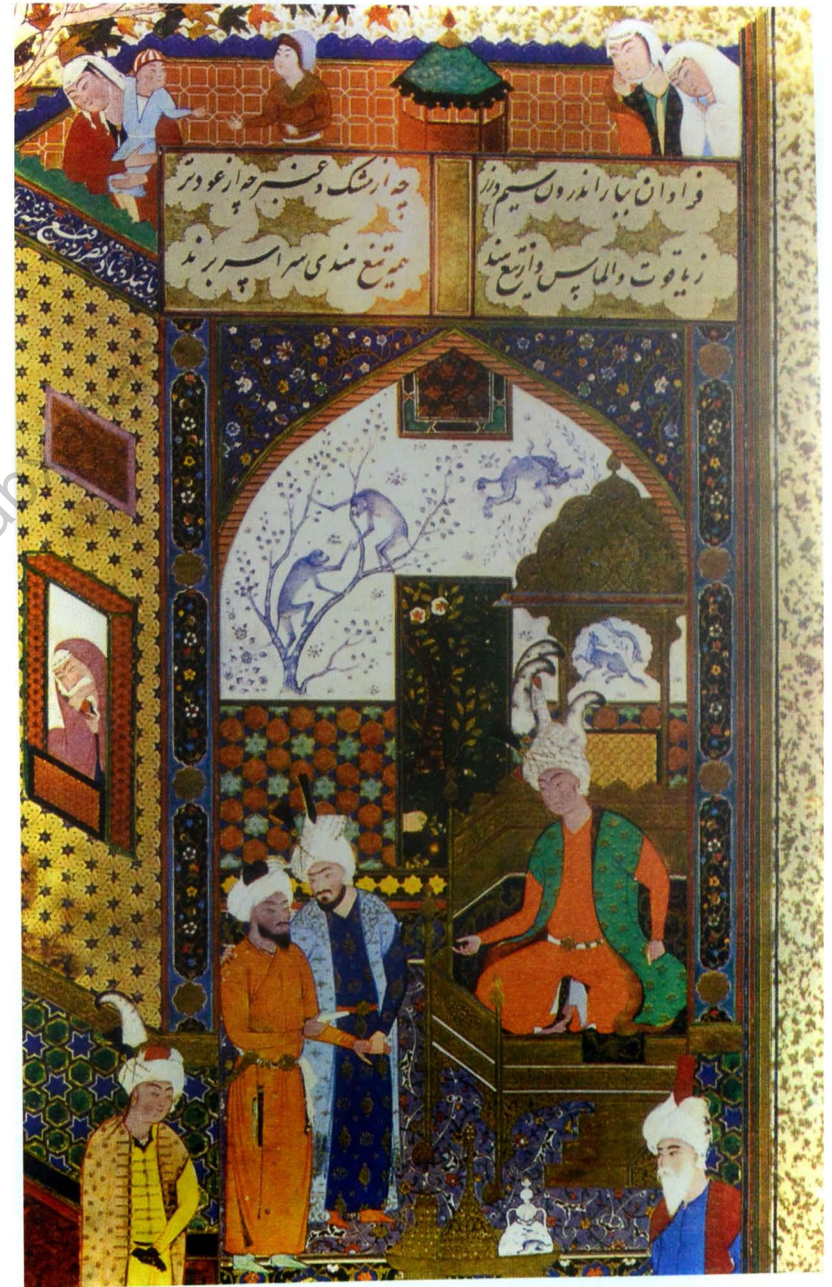 فراوان ببار اندرون سیم و زر
چه از مشک و عنبر چه از عود تر
ز یاقوت و الماس و از تیغ هند
همه تیغ هندی سراسر پرند
پاینده باد قصر رفیع